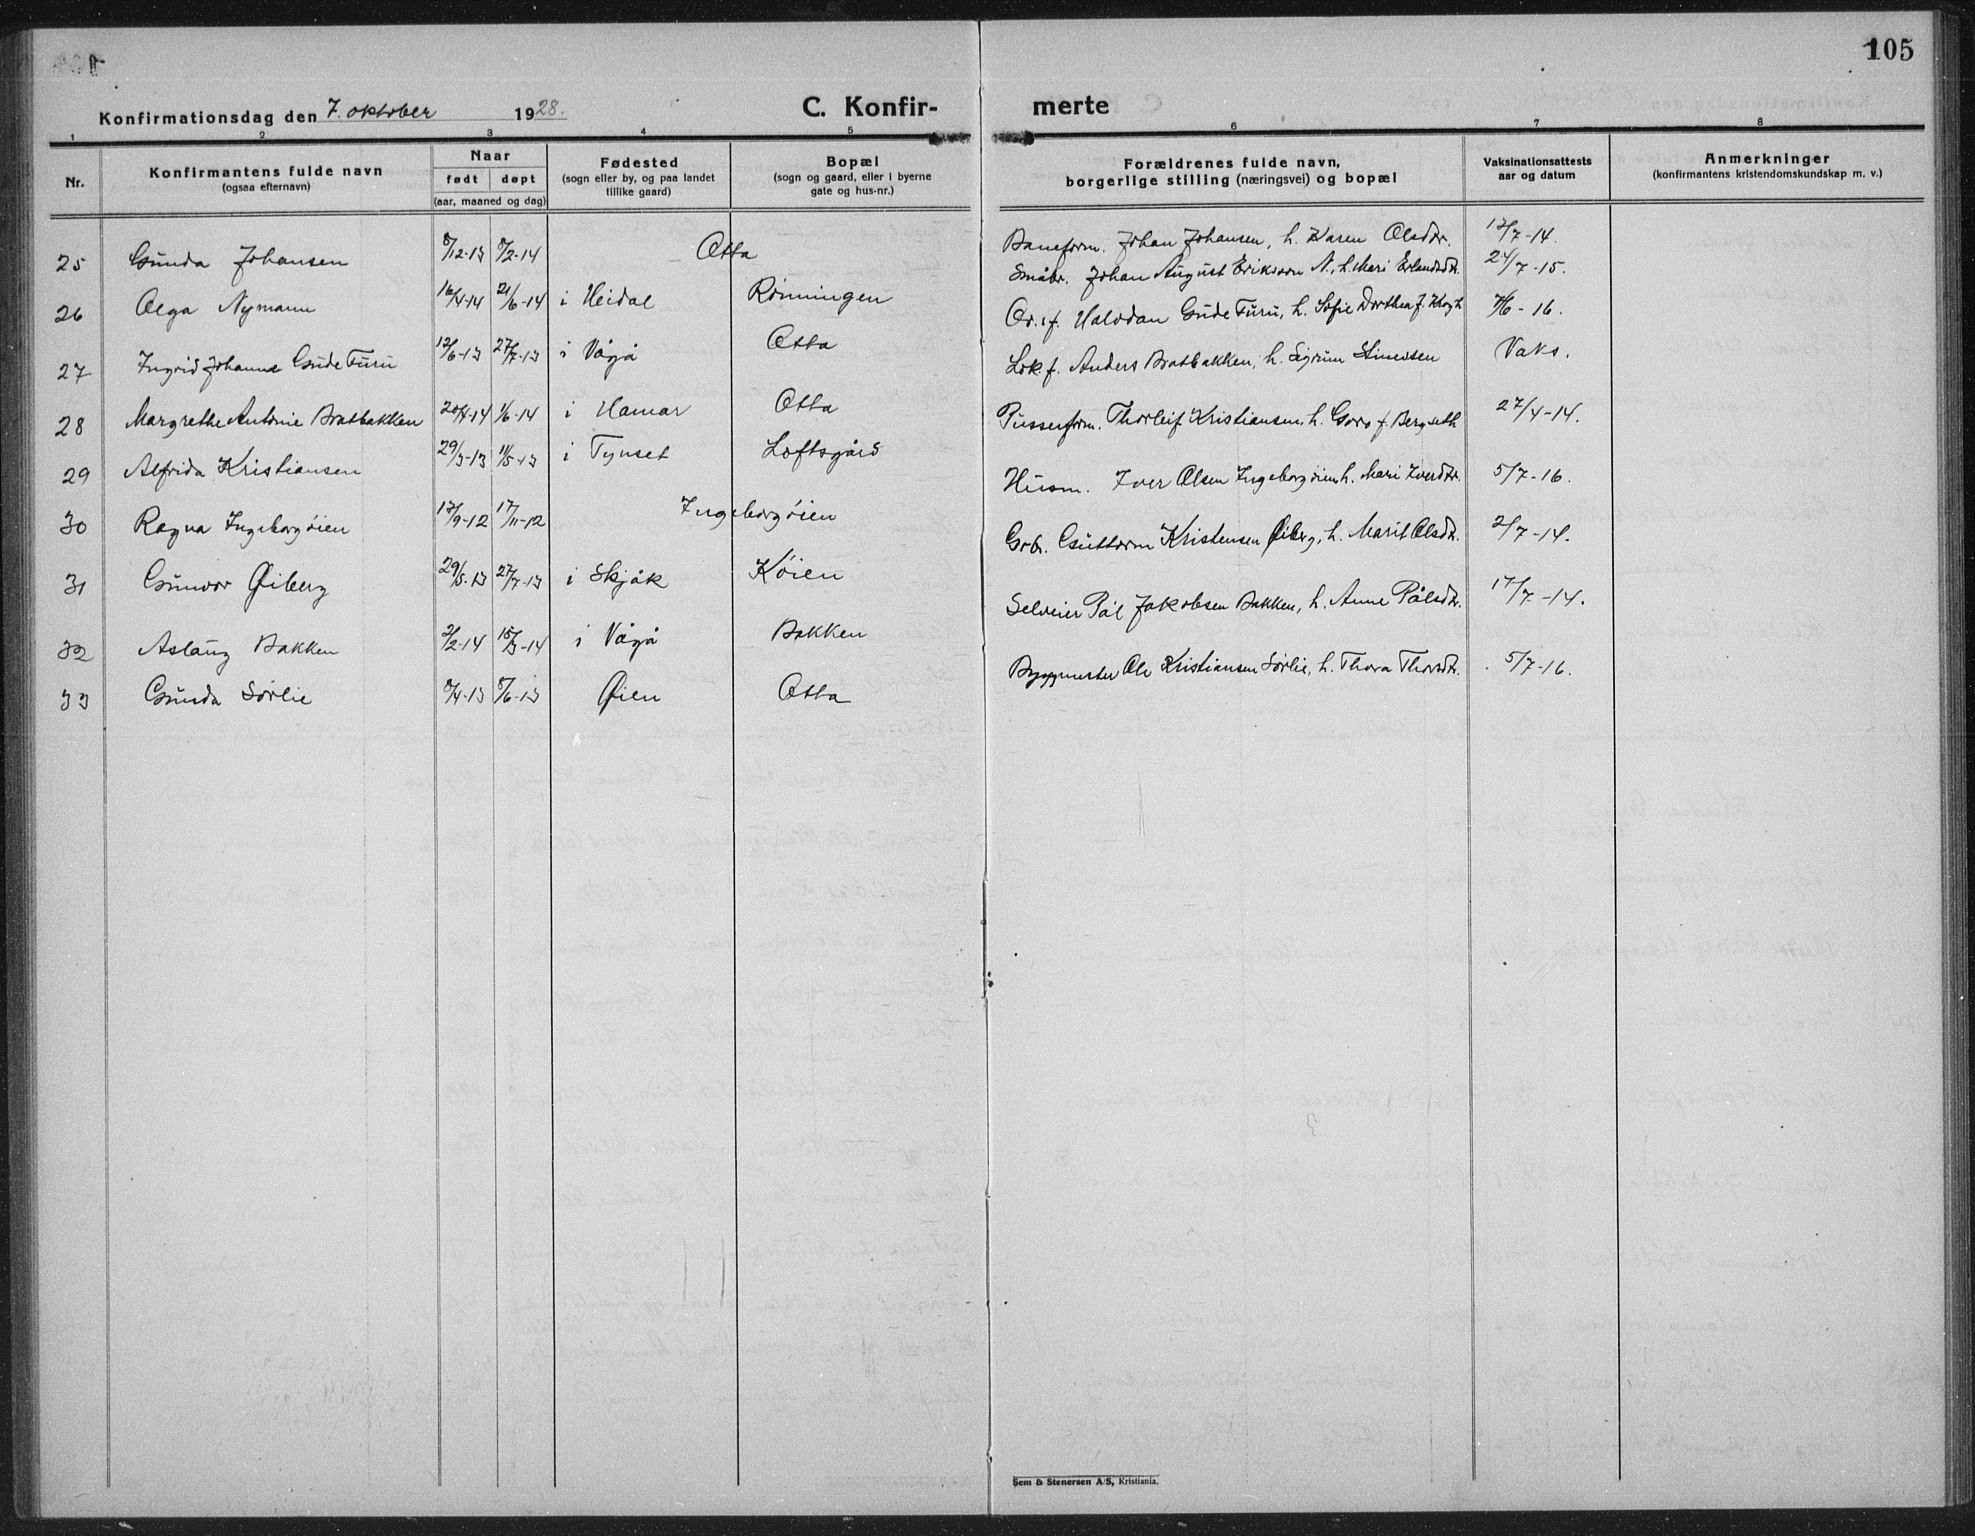 105
Konfirmationsdag den 7. oktober 1928.
C. Konfirmerte
1 2 3 4 5 6 7 8
Nr. Konfirmantens fulde navn (ogsaa efternavn) Naar født døpt (aar, maaned og dag) Fødested (sogn eller by, og paa landet tillike gaard) Bopæl (sogn og gaard, eller i byerne gate og hus-nr.) Forældrenes fulde navn, borgerlige stilling (næringsvei) og bopæl Vaksinationsattests aar og datum Anmerkninger (konfirmantens kristendomskundskap m. v.)
25 Gunda Johansen 8/12-13 8/2-14 Otta Baneform. Johan Johansen, h. Karen Olsdtr. 13/7-14.
26 Olga Nymann 16/4-14 21/6-14 i Heidal Rønningen Småbr. Johan August Eriksson N., h. Mari Erlandsdtr. 24/7-15.
27 Ingrid Johanne Gude Furu 12/6-13 27/7-13 i Vågå Otta Halvdan Gude Furu, h. Sofie Dorthea f. Krogh 7/6-16.
28 Margrethe Antonie Bratbakken 20/4-14 1/6-14 i Hamar Otta Lok.f. Anders Bratbakken, h. Sigrun Simensen Vaks.
29 Alfrida Kristiansen 29/3-13 11/5-13 i Tynset Loftsgård Pusserform. Thorleif Kristiansen, h. Goro f. Bergseth 27/4-14.
30 Ragna Ingeborgøien 13/9-12 17/11-12 Ingeborgøien Husm. Iver Olsen Ingeborgøien, h. Mari Iversdtr. 5/7-16.
31 Gunvor Øiberg 29/5-13 27/7-13 i Skjåk Køien Grbr. Guttorm Kristensen Øiberg, h. Marit Olsdtr. 2/7-14.
32 Aslaug Bakken 2/2-14 15/3-14 i Vågå Bakken Selveier Pål Jakobsen Bakken, h. Anne Pålsdtr. 17/7-14.
33 Gunda Sørlie 8/4-13 8/6-13 Øien Otta Byggmester Ole Kristiansen Sørlie, h. Thora Thorsdtr. 5/7-16.
Sem & Stenersen A/S, Kristiania.